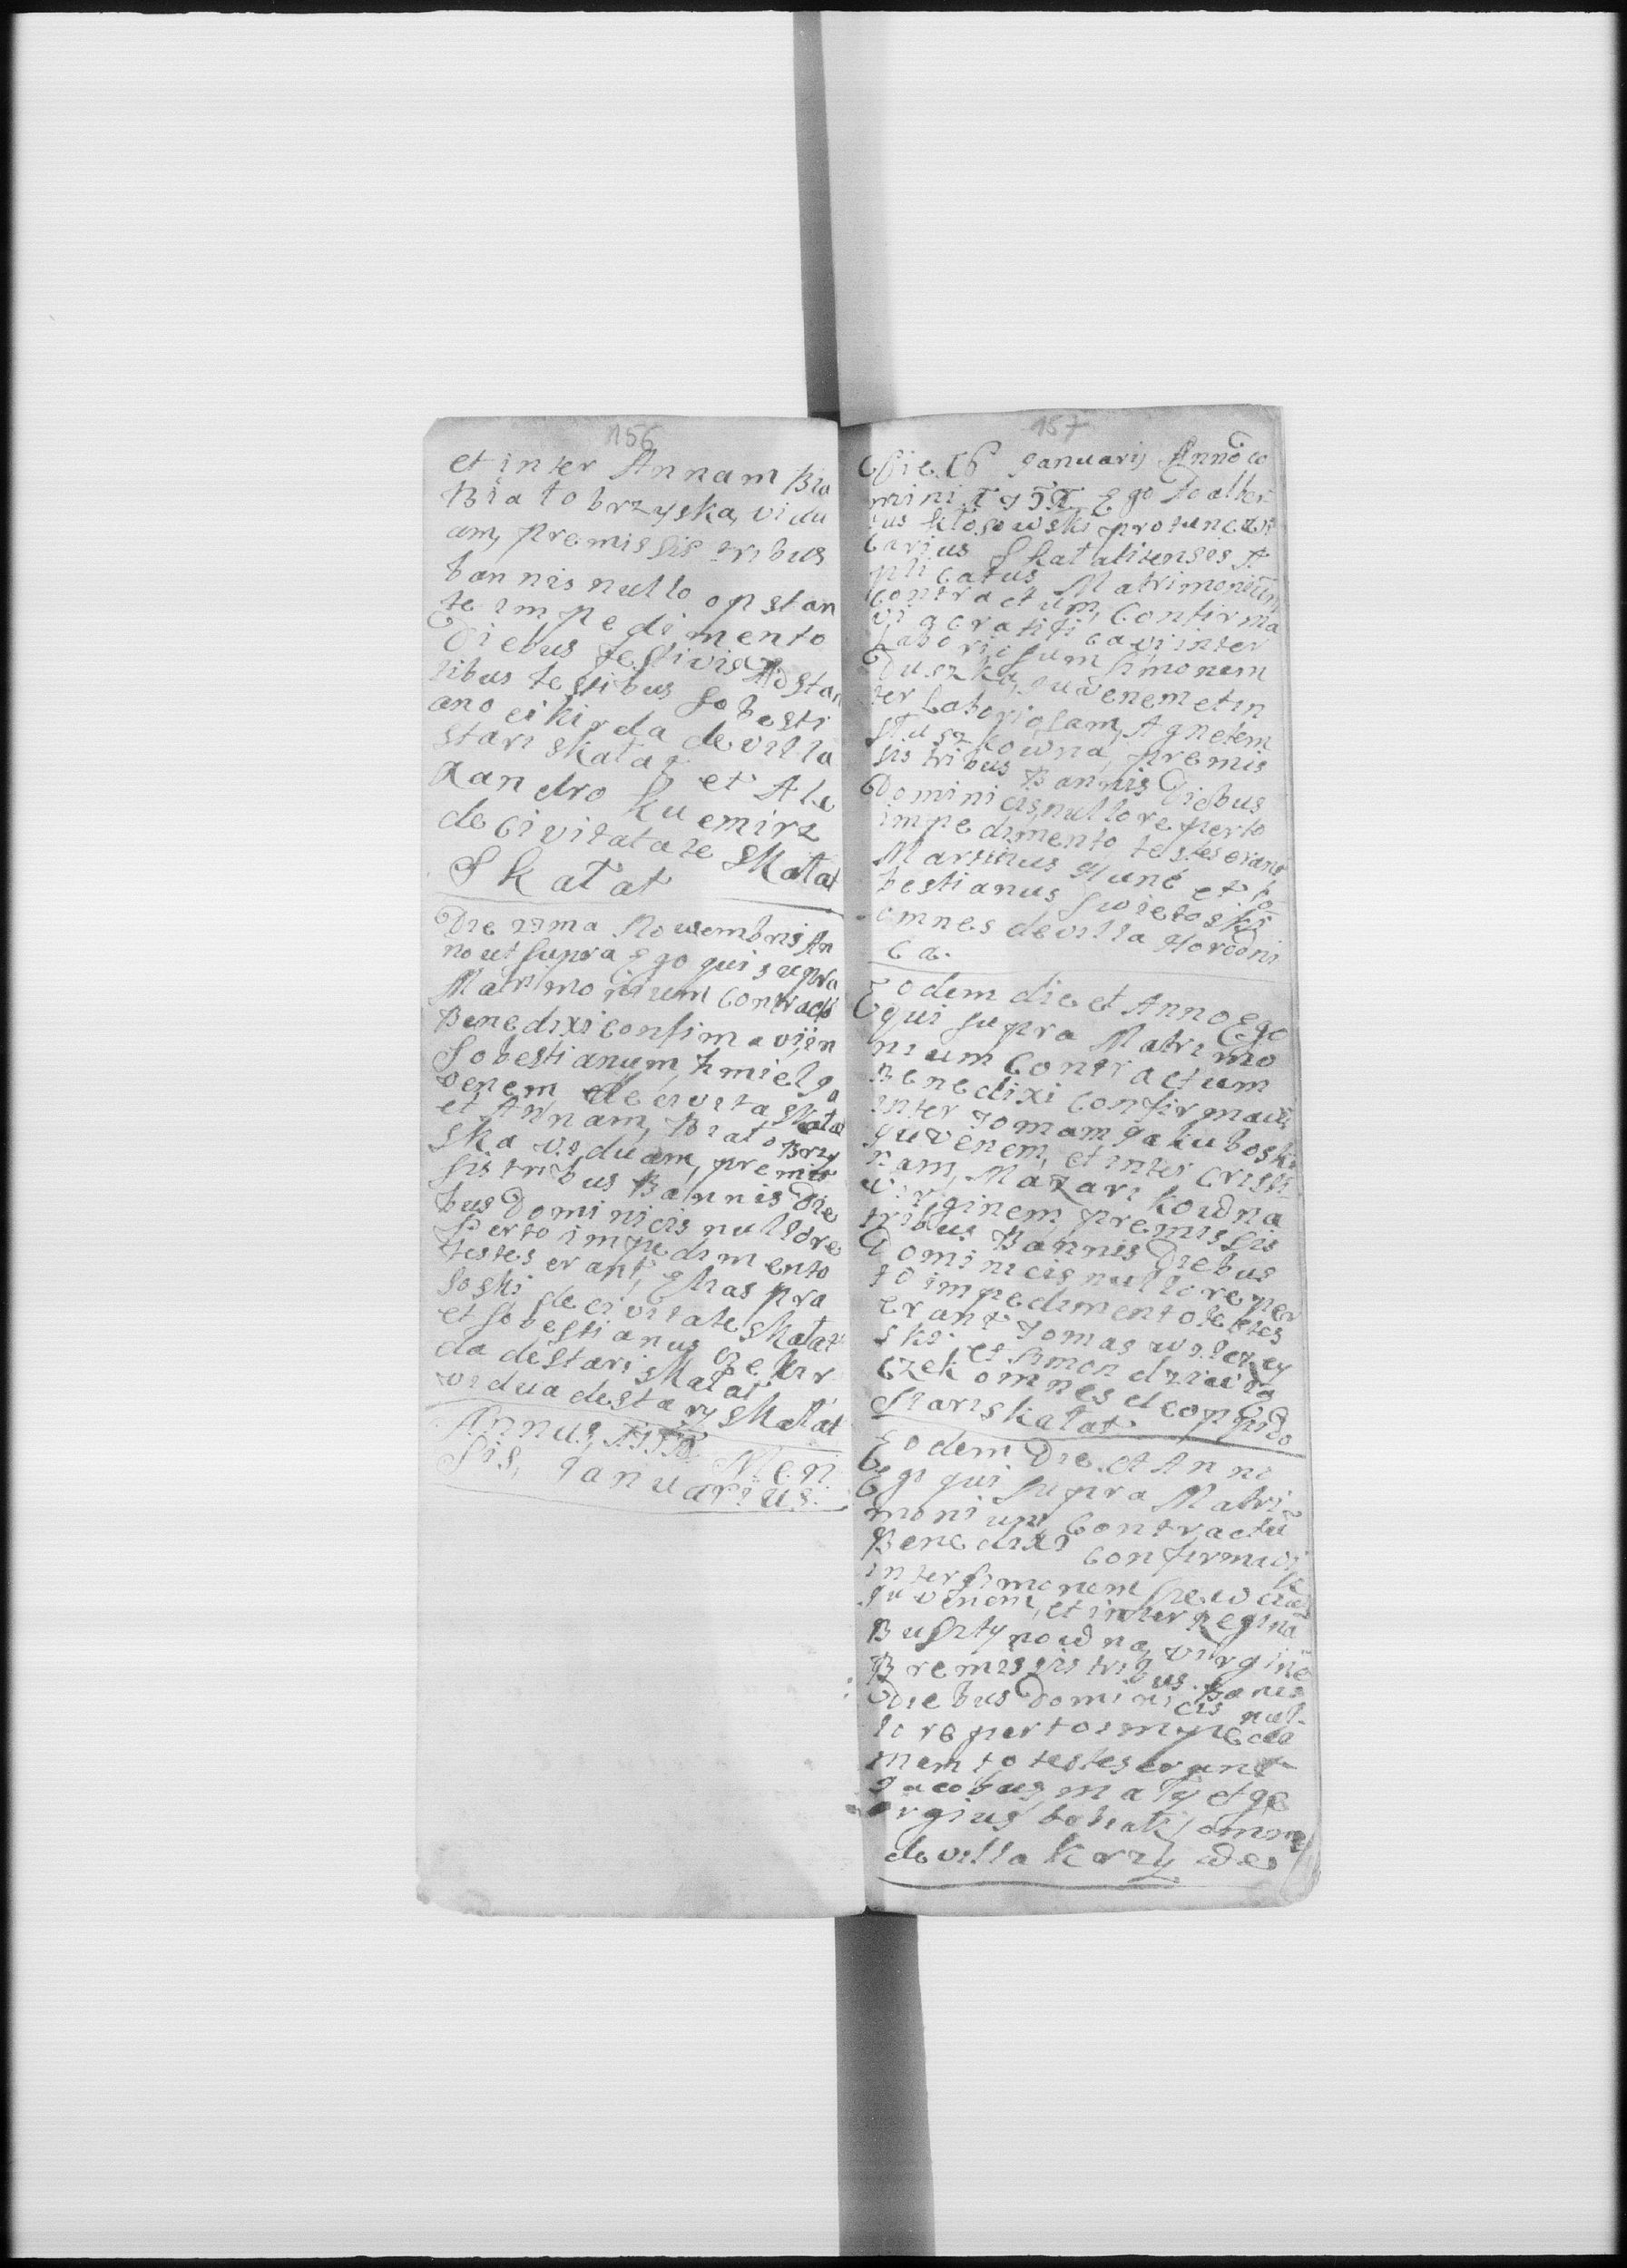 156
et inter Annam Bia
Biatobrzyska, vidu
am, premissis tribus
bannis nullo opstan
te impedimento
Diebus festivis Adstan
tibus testibus Sobesti
ano cikirda de villa
stari skatat et Ale
xandro Kuemirz
de Civitatate Skatat
Skatat
Die 22ma Nowembris An
no ut supra Ego qui supra
Matrimonium Contract
Benedixi confimavi in
Sobestianum, kmiel ga
venem de civita Skatat
et Annam, Biatobrzy
ska viduam, premis
sis tribus Bannis Die
bus Dominicis nullo re
perto impedimento
testes erant, Elias pra
soski de civitate Skatat
et Sobestianus cekir
da de Stari Skatat
vidua de Stary Skatat
Annus, Men
sis, Januarius.
157
Die 16 Januarij Anno Do
mini Ego Adalber
tus Klosowski pro tunc
carius Skatatitenses
plicatus Matrimonium
contractum, Confirma
vi ac ratifi cavi inter
Laboriosum Simonem
Duszka, juvenem et in
ter Laboriosam, Agnetem
Stuszkowna, premis
sis tribus Bannis Diebus
Dominicis, nullo reperto
impedimento testes erant
Martinus Hunc et So
bestianus Swietoski
omnes de villa Horodni
ca.
Eodem die et Anno Ego
qui supra Matrimo
nium Contractum
Benedixi confirmavi
inter Tomam Jakuboski
juvenem, et inter Cristi
nam, Mazarikowna
virginem, premissis
tribus Bannis Diebus
Dominicis nullo reper
to impedimento testes
erant Tomas
ski et Simon dziewia
czek omnes de oppido
Stariskatat
Eodem Die et Anno
Ego qui supra Matri
monium Contractu
Benedixi confirmavi
inter Simonem
juvenem, et inter Regina
Busztynowna, virgine
Premissis tribus Banis
Diebus Dominicis nul-
lo reperto impedi
mento testes erant
Jacobus, maty et ge
orgius babiak, omnes
de villa Krzywe